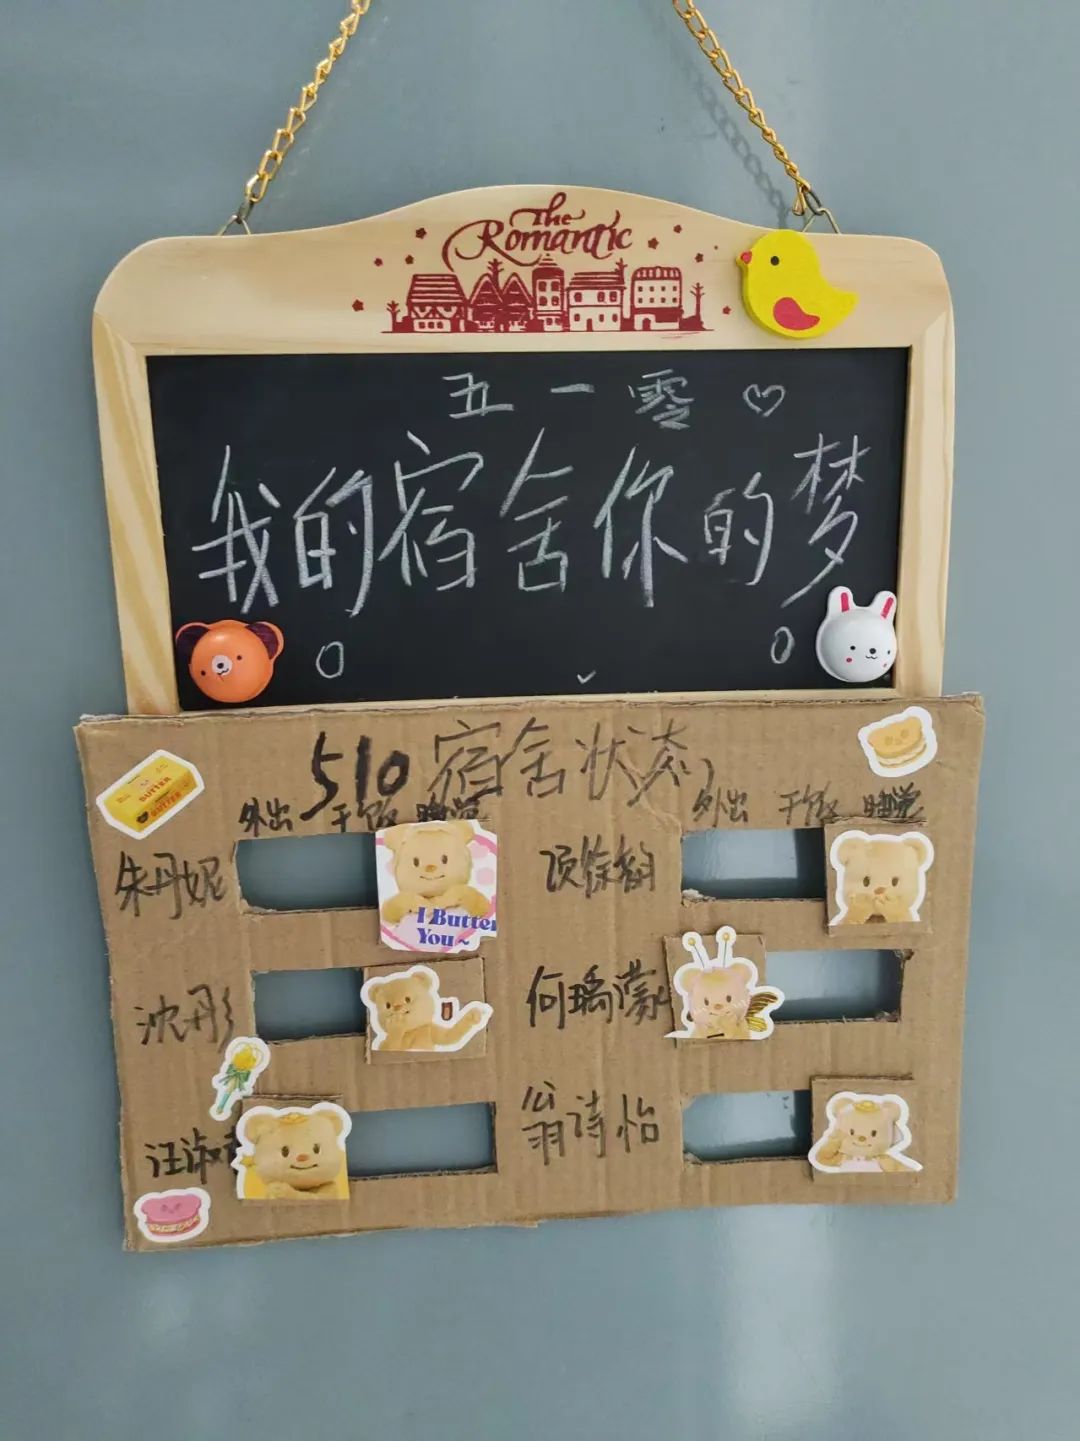 The
Romantic
五一零
我的宿舍你的梦
510宿舍状态
外出 干饭 睡觉 外出 干饭 睡觉
BUTTER
BUTTER
朱丹妮
I Butter
You~
沈彤
何瑀濛
汪淑
翁诗怡